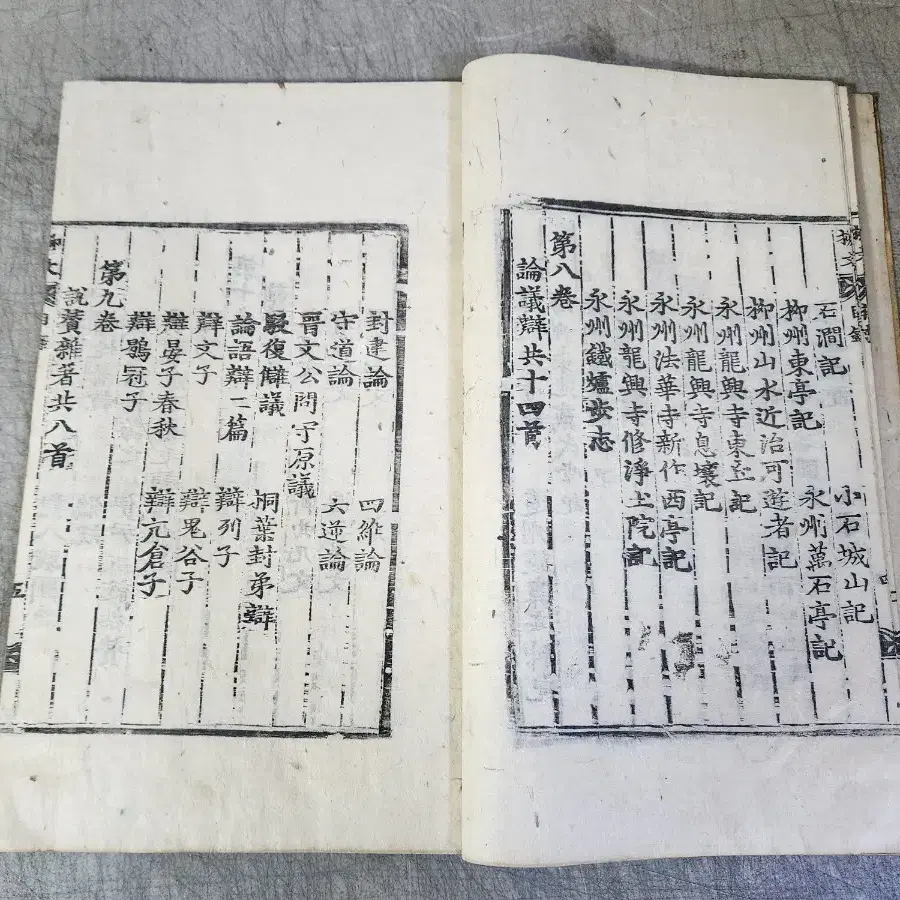 柳文 目錄
石澗記 小石城山記
柳州東亭記 永州萬石亭記
柳州山水近治可遊者記
永州龍興寺東丘記
永州龍興寺息壤記
永州法華寺新作西亭記
永州龍興寺修淨土院記
永州鐵爐步志
第八卷
論議辯共十四首
封建論 四維論
守道論 六逆論
晉文公問守原議
駁復讎議 桐葉封弟辯
論語辯二篇 辯列子
辯文子 辯鬼谷子
辯晏子春秋 辯亢倉子
辯鶡冠子
第九卷
說贊雜著共八首
五